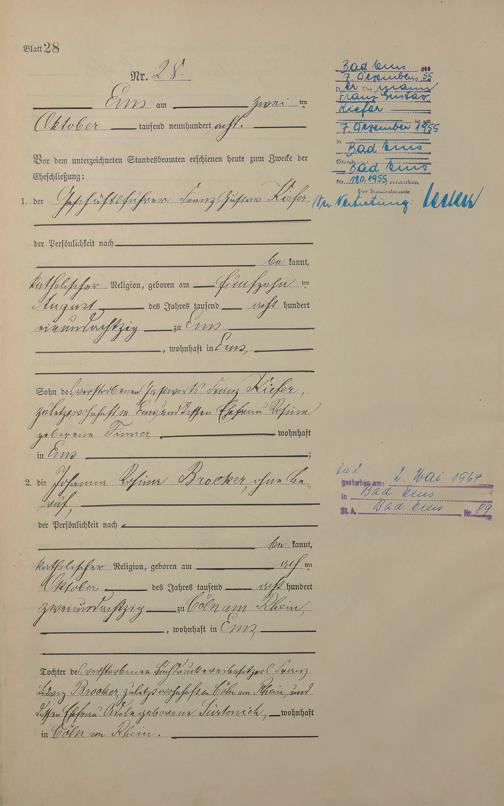 Blatt 28
Nr. 28.
Ems am zwei ten
Oktober tausend neunhundert acht.
Vor dem unterzeichneten Standesbeamten erschienen heute zum Zwecke der
Eheschließung:
1. der Geschäftsführer Franz Gustav Kiefer
der Persönlichkeit nach
be kannt,
katholischer Religion, geboren am fünfzehn ten
August des Jahres tausend acht hundert
neunundachtzig zu Ems
, wohnhaft in Ems,
Sohn des verstorbenen Gastwirts Franz Kiefer,
zuletzt wohnhaft in Ems und dessen Ehefrau
geborene wohnhaft
in Ems ;
2. die Johanna Brocker, ohne Be-
ruf,
der Persönlichkeit nach
be kannt,
katholischer Religion, geboren am ten
Oktober des Jahres tausend acht hundert
zweiundachtzig zu Cöln am Rhein,
, wohnhaft in Ems,
Tochter des verstorbenen Buchdruckereibesitzers Franz
Brocker, zuletzt wohnhaft in Cöln am Rhein, und
dessen Ehefrau geborene wohnhaft
in Cöln am Rhein.
Bad Ems
7. Dezember 55
Franz Gustav
Kiefer
7. Dezember 1955
Bad Ems
Bad Ems
Nr. 180/1955
In Vertretung:
gestorben am: 2. Mai 1964
in Bad Ems
St. A. Bad Ems Nr. 89